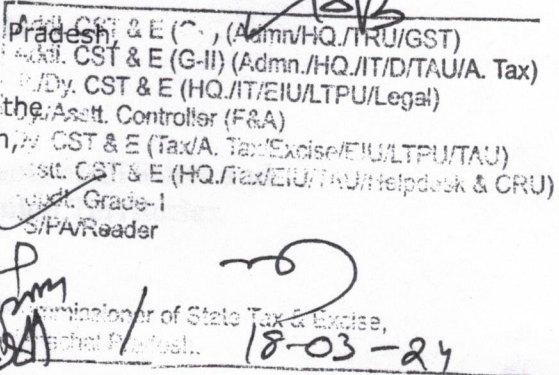 Pradesh,
Addl. CST & E (Admn/HQ./TRU/GST)
Addl. CST & E (G-II) (Admn./HQ./IT/D/TAU/A. Tax)
/Dy. CST & E (HQ./IT/EIU/LTPU/Legal)
the /Asstt. Controller (F&A)
CST & E (Tax/A. Tax/Excise/EIU/LTPU/TAU)
CST & E (HQ./Tax/EIU/TAU/Helpdesk & CRU)
Grade-I
/PA/Reader
Commissioner of State Tax & Excise,
Himachal Pradesh.
18-03-24